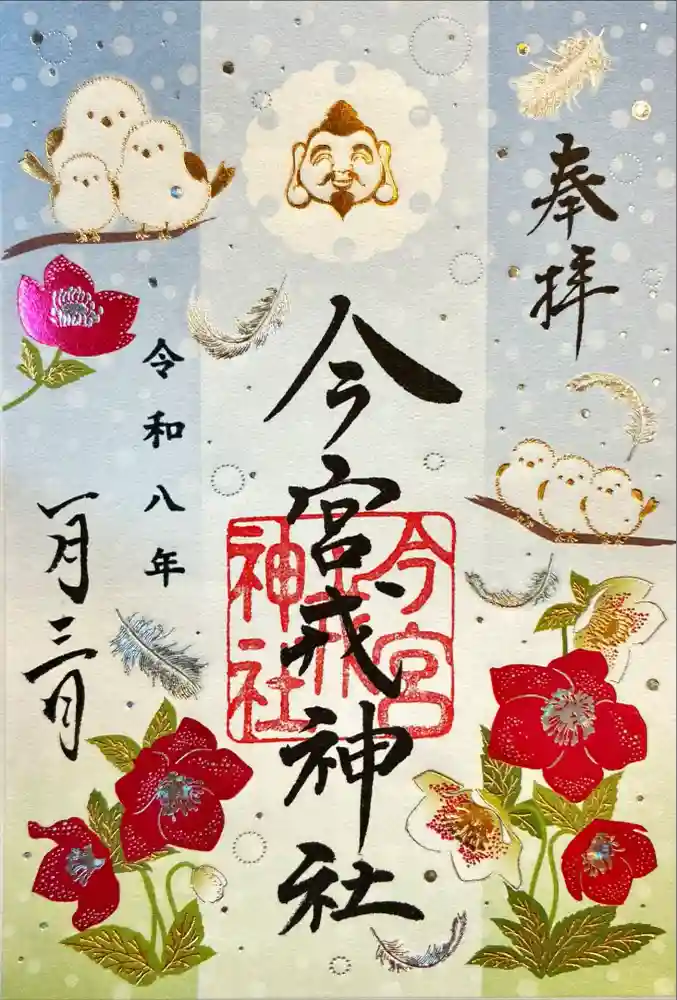 奉拝
今宮戎神社
今宮
戎
神社
令和八年
一月三日